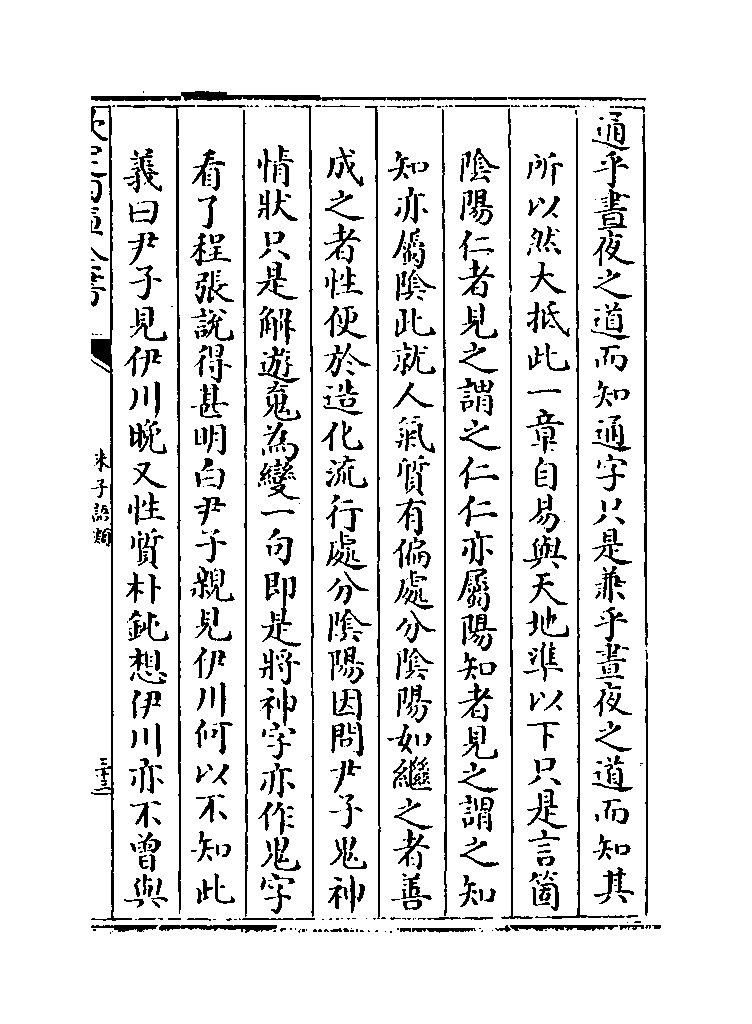 通乎晝夜之道而知通字只是兼乎晝夜之道而知其
所以然大抵此一章自易與天地準以下只是言箇
陰陽仁者見之謂之仁仁亦屬陽知者見之謂之知
知亦屬陰此就人氣質有偏處分陰陽如繼之者善
成之者性便於造化流行處分陰陽因問尹子鬼神
情狀只是解遊䰟為變一句即是將神字亦作鬼字
看了程張說得甚明白尹子親見伊川何以不知此
義曰尹子見伊川晚又性質朴鈍想伊川亦不曾與
朱子語類
三十三